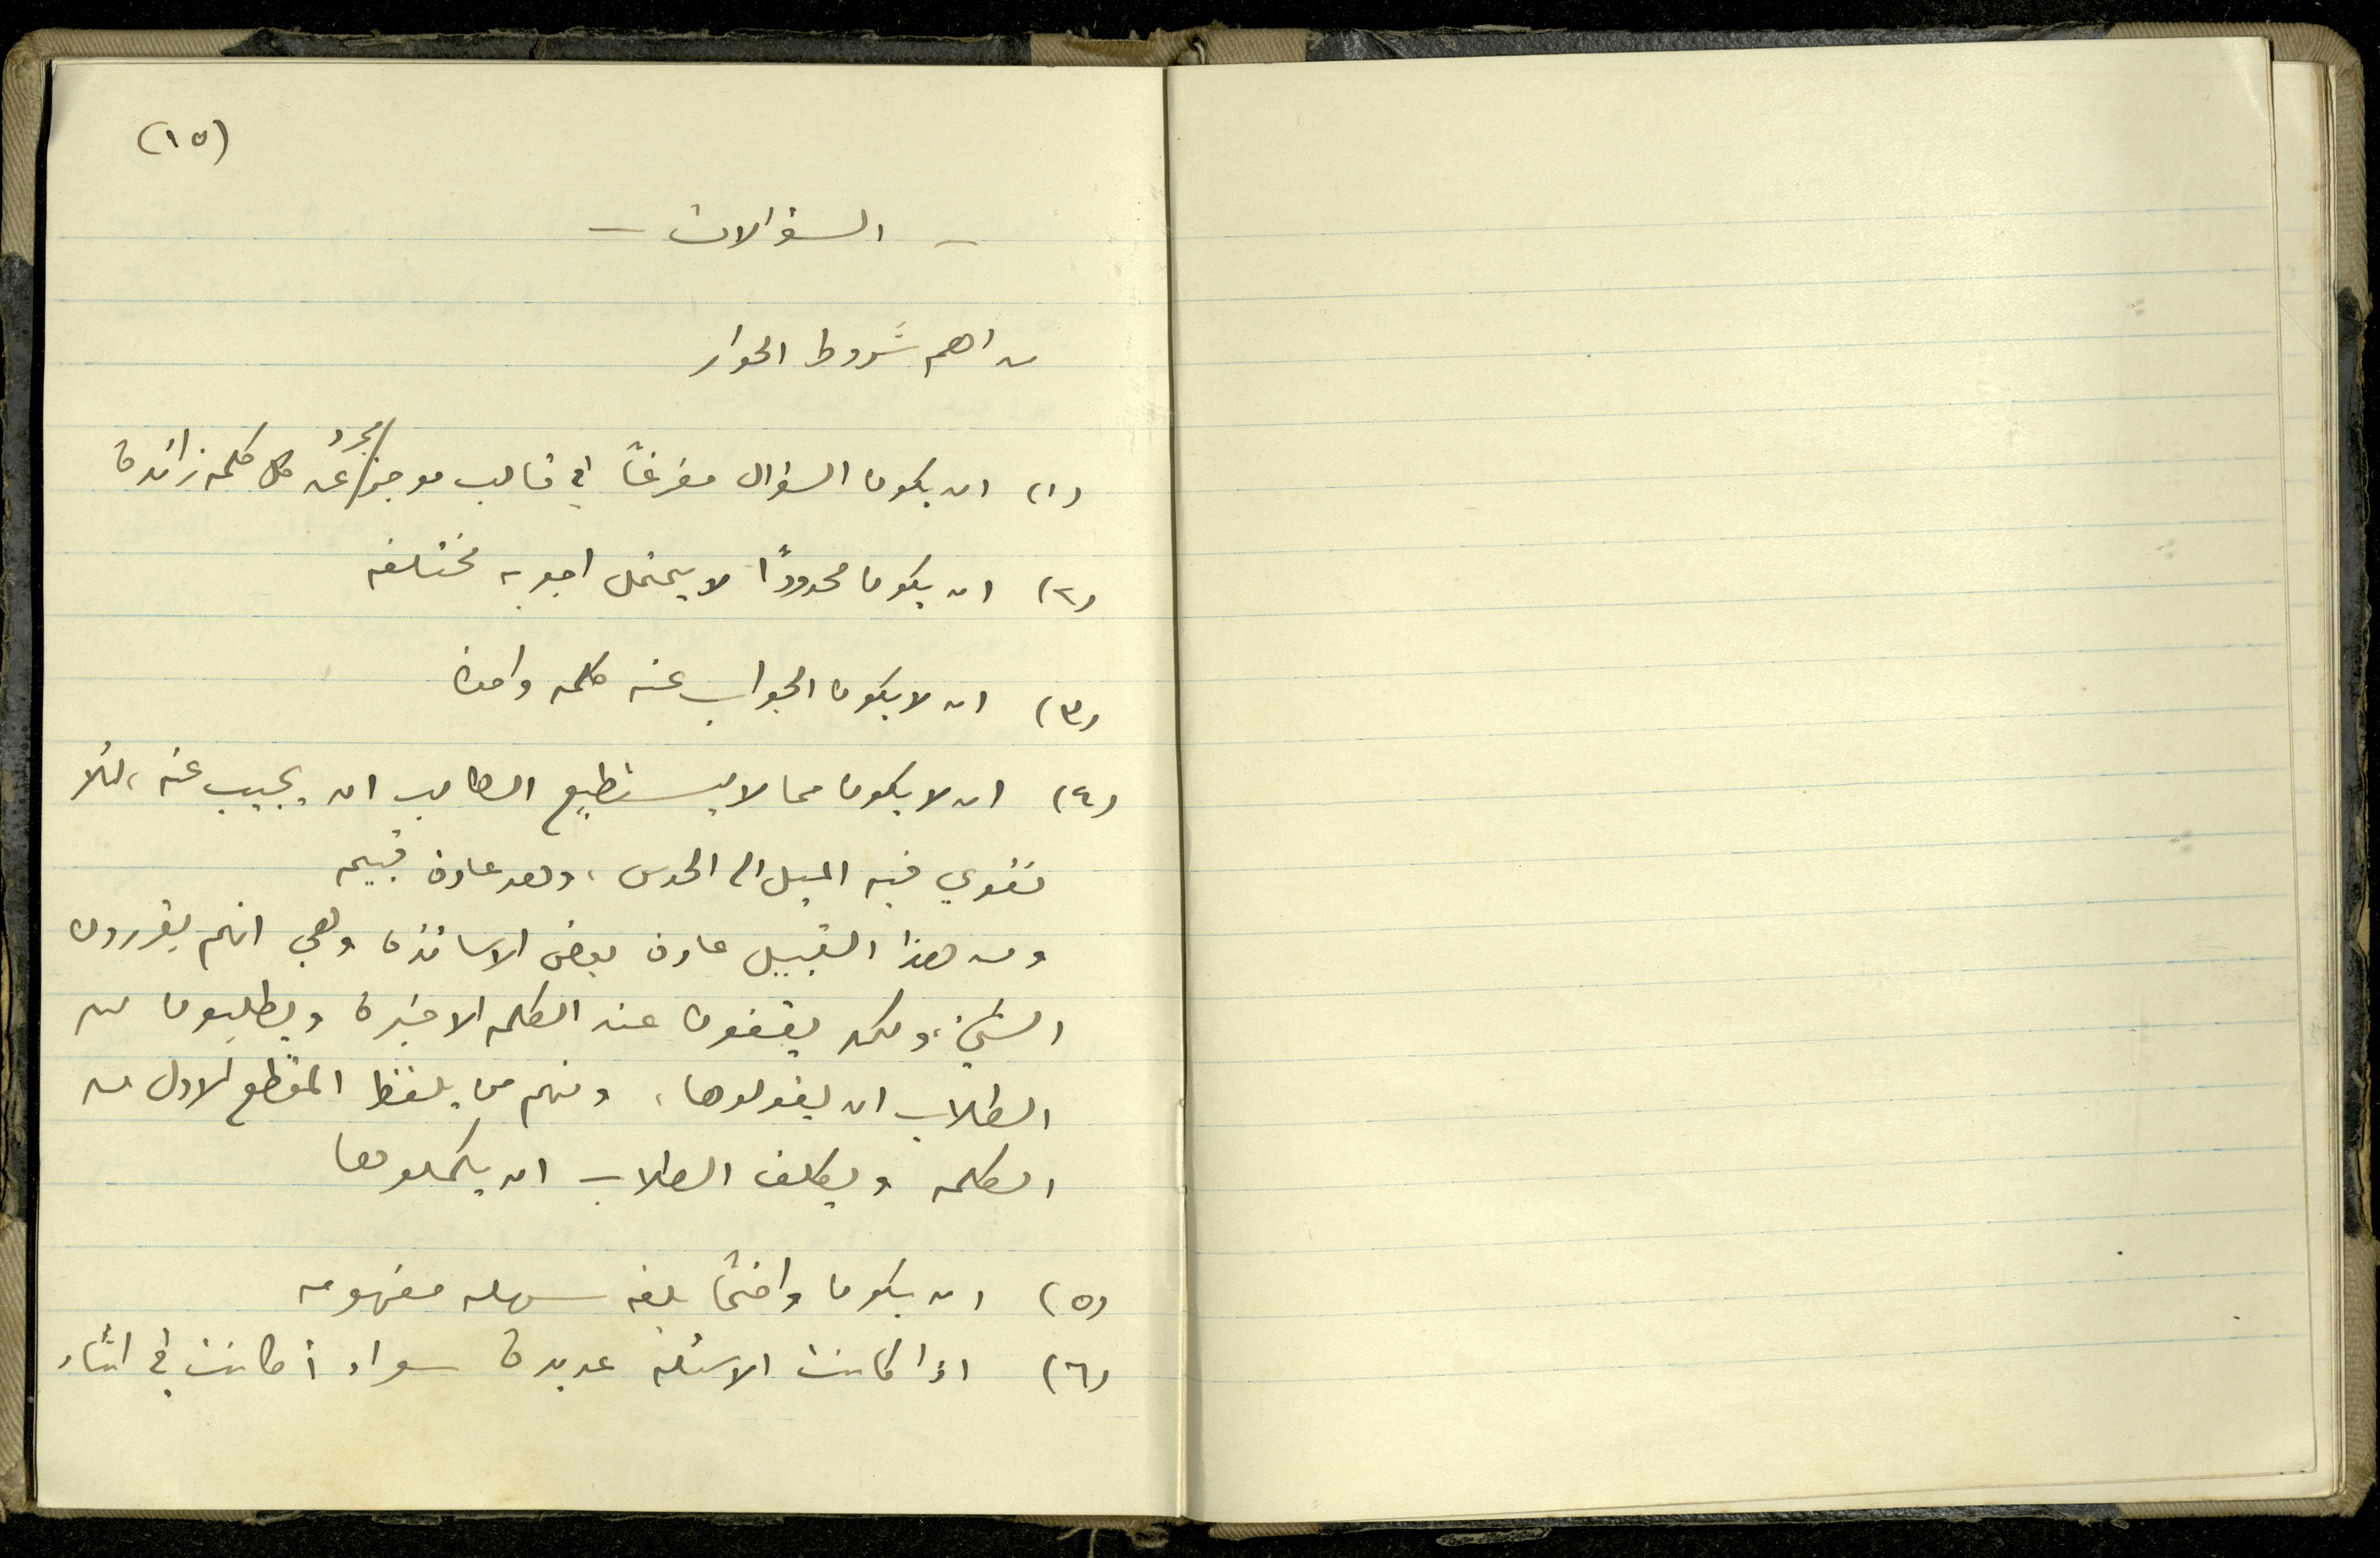 (١٥)
– السؤالات –
من اهم شروط الحوار
(١) ان يكون السؤال مفرغاً في قالب موجز / مجرد عن كل كلمه زائدة
(٢) ان يكون محدوداً لا يحتمل اجوبه مختلفه
(٣) ان لا يكون الجواب عنه كلمه واحدة
(٤) ان لا يكون مما لا يستطيع الطالب ان يجيب عنه، لئلا
نقوي فيه الميل الى الحدس، وهو عادة قبيحه
ومن هذا القبيل عادة بعض الاساتذة وهي انهم يقررون
الشيء، ولكن يقفون عند الكلمه الاخيرة ويطلبون من
الطلاب ان يقولوها، ومنهم من يلفظ المقطع الاول من
الكلمه ويكلف الطلاب ان يكملوها
(٥) ان يكون واضحاً بلغه سهله مفهومه
(٦) اذا كانت الاسئله عديدة سواء أكانت في اثناء